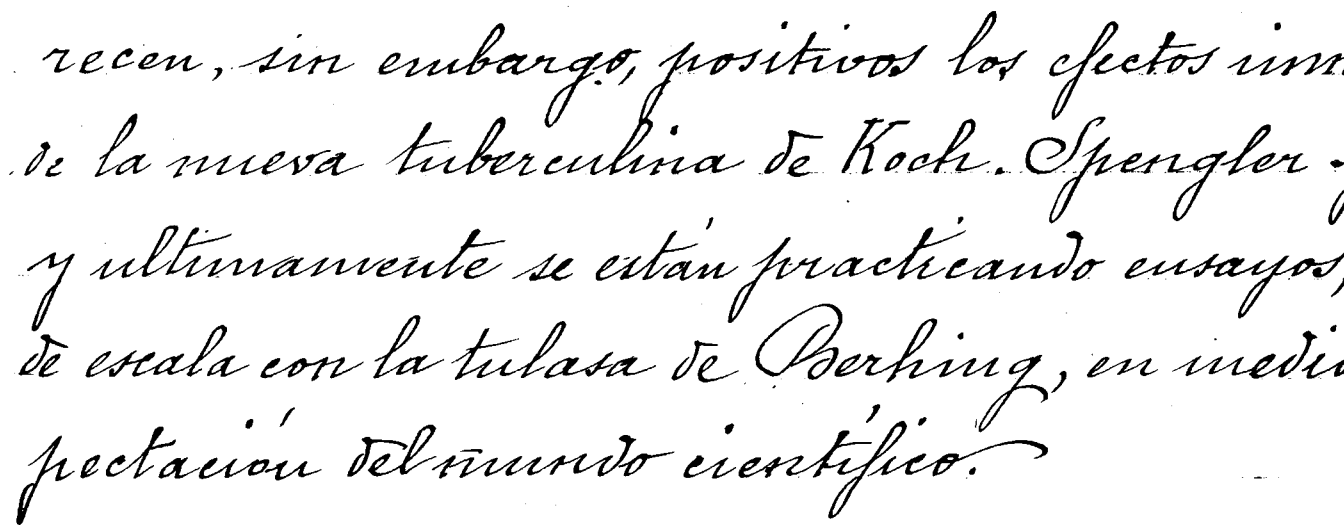 recen, sin embargo, positivos los efectos inm
de la nueva tuberculina de Koch. Spengler y
y ultimamente se están practicando ensayos,
de escala con la tulasa de Berhing, en medio
pectación del mundo científico.